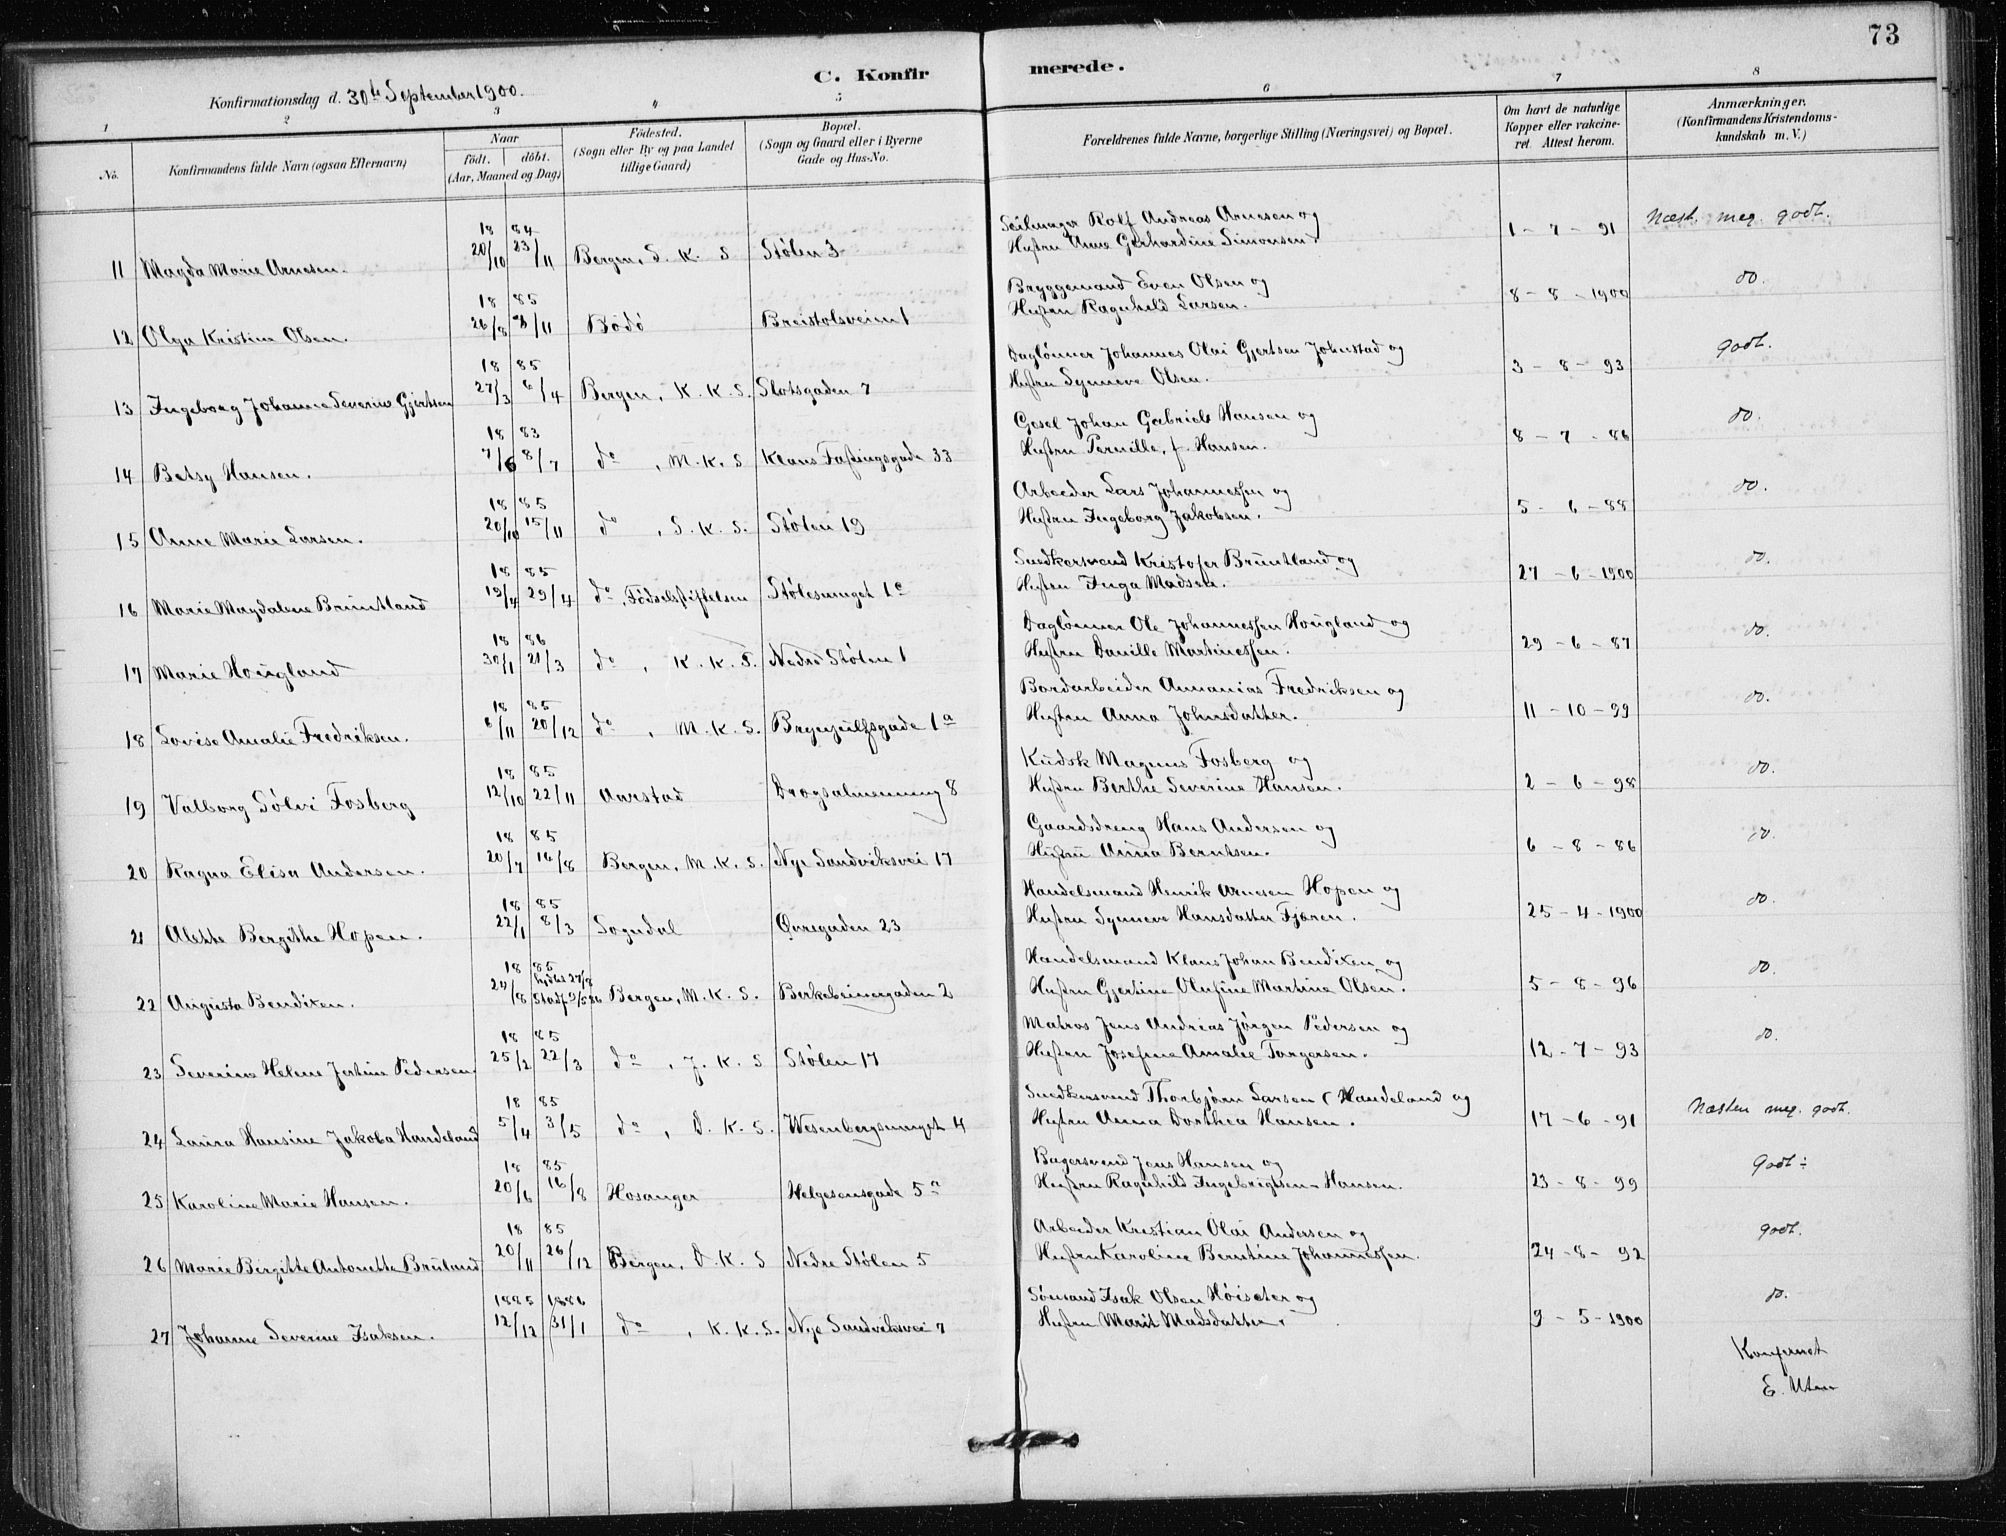 73
C. Konfirmerede.
Konfirmationsdag d. 30te September 1900.
1 2 3 4 5 6 7 8
No. Konfirmandens fulde Navn (ogsaa Efternavn)
Naar født. døbt. (Aar, Maaned og Dag)
Fødested. (Sogn eller By og paa Landet tillige Gaard)
Bopæl. (Sogn og Gaard eller i Byerne Gade og Hus-No.
Forældrenes fulde Navne, borgerlige Stilling (Næringsvei) og Bopæl.
Om havt de naturlige Kopper eller vakcineret. Attest herom.
Anmærkninger. (Konfirmandens Kristendomskundskab m. V.)
18 84 Seilmager Rolf Andreas Arnesen og
11 Magda Marie Arnesen. 20/10 23/11 Bergen, D. K. S Stølen 3 Hustru Anne Gerhardine Simonsen. 1-7-91 Næst. meg. godt.
18 85 Bryggemand Even Olsen og
12 Olga Kristine Olsen. 26/8 8/11 Bodö Breistolsveien 1 Hustru Ragnhild Larsen. 8-8-1900 do.
18 85 Daglönner Johannes Olai Gjertsen Johnstad og
13 Ingeborg Johanne Severine Gjertsen 27/3 6/4 Bergen, K. K. S. Slotsgaden 7 Hustru Synneve Olsen. 3-8-93 godt.
18 83 Gesel Johan Gabriel Hansen og
14 Betsy Hansen. 7/6 8/7 do, M. K. S Klaus Fastingsgade 33 Hustru Pernille, f. Hansen. 8-7-86 do.
18 85 Arbeider Lars Johannessen og
15 Anne Marie Larsen. 20/10 15/11 do, D. K. S. Stølen 19 Hustru Ingeborg Jakobsen. 5-6-88 do.
18 85 Snedkersvend Kristofer Bruntland og
16 Marie Magdalene Bruntland 19/4 29/4 do, Födselsstiftelsen Stølesmuget 1c Hustru Inga Madsen. 27-6-1900 do.
18 86 Daglönner Ole Johannessen Hougland og
17 Marie Hougland 30/1 21/3 do, K. K. S. Nedre Stølen 1 Hustru Danille Martinessen. 29-6-87 do.
18 85 Bordarbeider Annanias Fredriksen og
18 Lovise Amalie Fredriksen. 6/11 20/12 do, M. K. S. Brynjulfsgade 1a Hustru Anna Johnsdatter. 11-10-99 do.
18 85 Kudsk Magnus Fosberg og
19 Valborg Sölvi Fosberg 12/10 22/11 Aarstad Drægsalmenning 8 Hustru Berthe Severine Hansen. 2-6-98 do.
18 85 Gaardsdreng Hans Andersen og
20 Ragna Elisa Andersen. 20/7 16/8 Bergen, M. K. S. Nye Sandviksvei 17 Hustru Anna Berntsen. 6-8-86 do.
18 85 Handelsmand Henrik Arnesen Hopen og
21 Alette Bergithe Hopen. 22/1 8/3 Sogndal Øvregaden 23 Hustru Synneve Hansdatter Fjæren. 25-4-1900 do.
18 85 Handelsmand Klaus Johan Bendixen og
22 Augusta Bendixen. 20/8 hjdbt 27/8 Bergen, M. K. S. Berkebeinergaden 2 Hustru Gjertine Olufine Martine Olsen. 5-8-96 do.
18 85 Matros Jens Andreas Jørgen Pedersen og
23 Severine Helene Jertine Pedersen. 25/2 22/3 do, J. K. S Stølen 17 Hustru Josefine Amalie Torgersen. 12-7-93 do.
18 85 Snedkersvend Thorbjørn Larsen (Handeland og
24 Laura Hansine Jakoba Handeland 5/4 3/5 do, D. K. S. Wesenbergsmuget 4 Hustru Anna Dorthea Hansen. 17-6-91 Næsten meg. godt.
18 85 Bagersvend Jens Hansen og
25 Karoline Marie Hansen. 20/6 16/8 Hosanger Helgesensgade 5a Hustru Ragnhild Ingebrigtsen-Hansen. 23-8-99 Godt ÷
18 85 Arbeider Kristian Olai Andersen og
26 Marie Birgitte Antonette Bruland 20/11 26/12 Bergen, D. K. S Nedre Stølen 5 Hustru Karoline Berntine Johannessen. 24-8-92 godt.
1885 1886 Sömand Isak Olsen Höiseter og
27 Johanne Severine Isaksen. 12/12 31/1 do, K. K. S. Nye Sandviksvei 7 Hustru Marit Madsdatter. 9-5-1900 do.
Konfereret